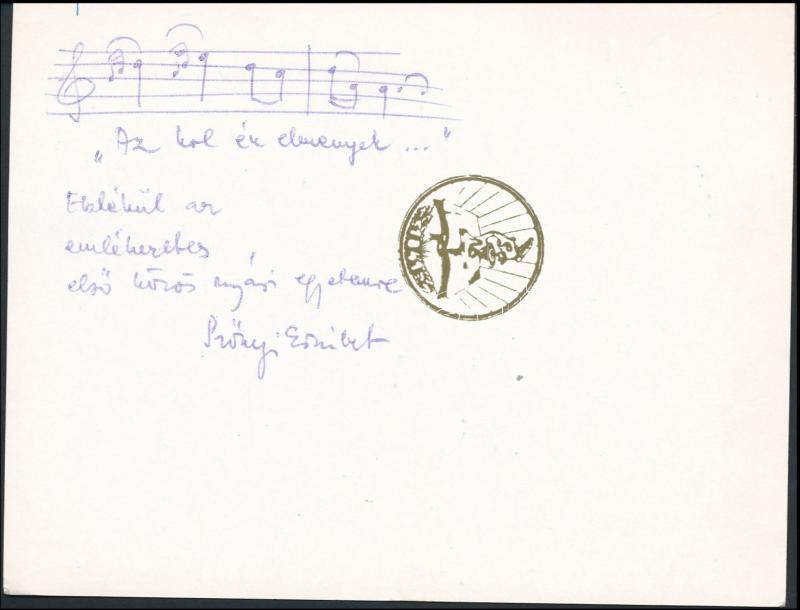 „Az hol én elmenyek ..."
Emlékül az
emlékezetes
első közös nyári egyetemre
Szőnyi Erzsébet